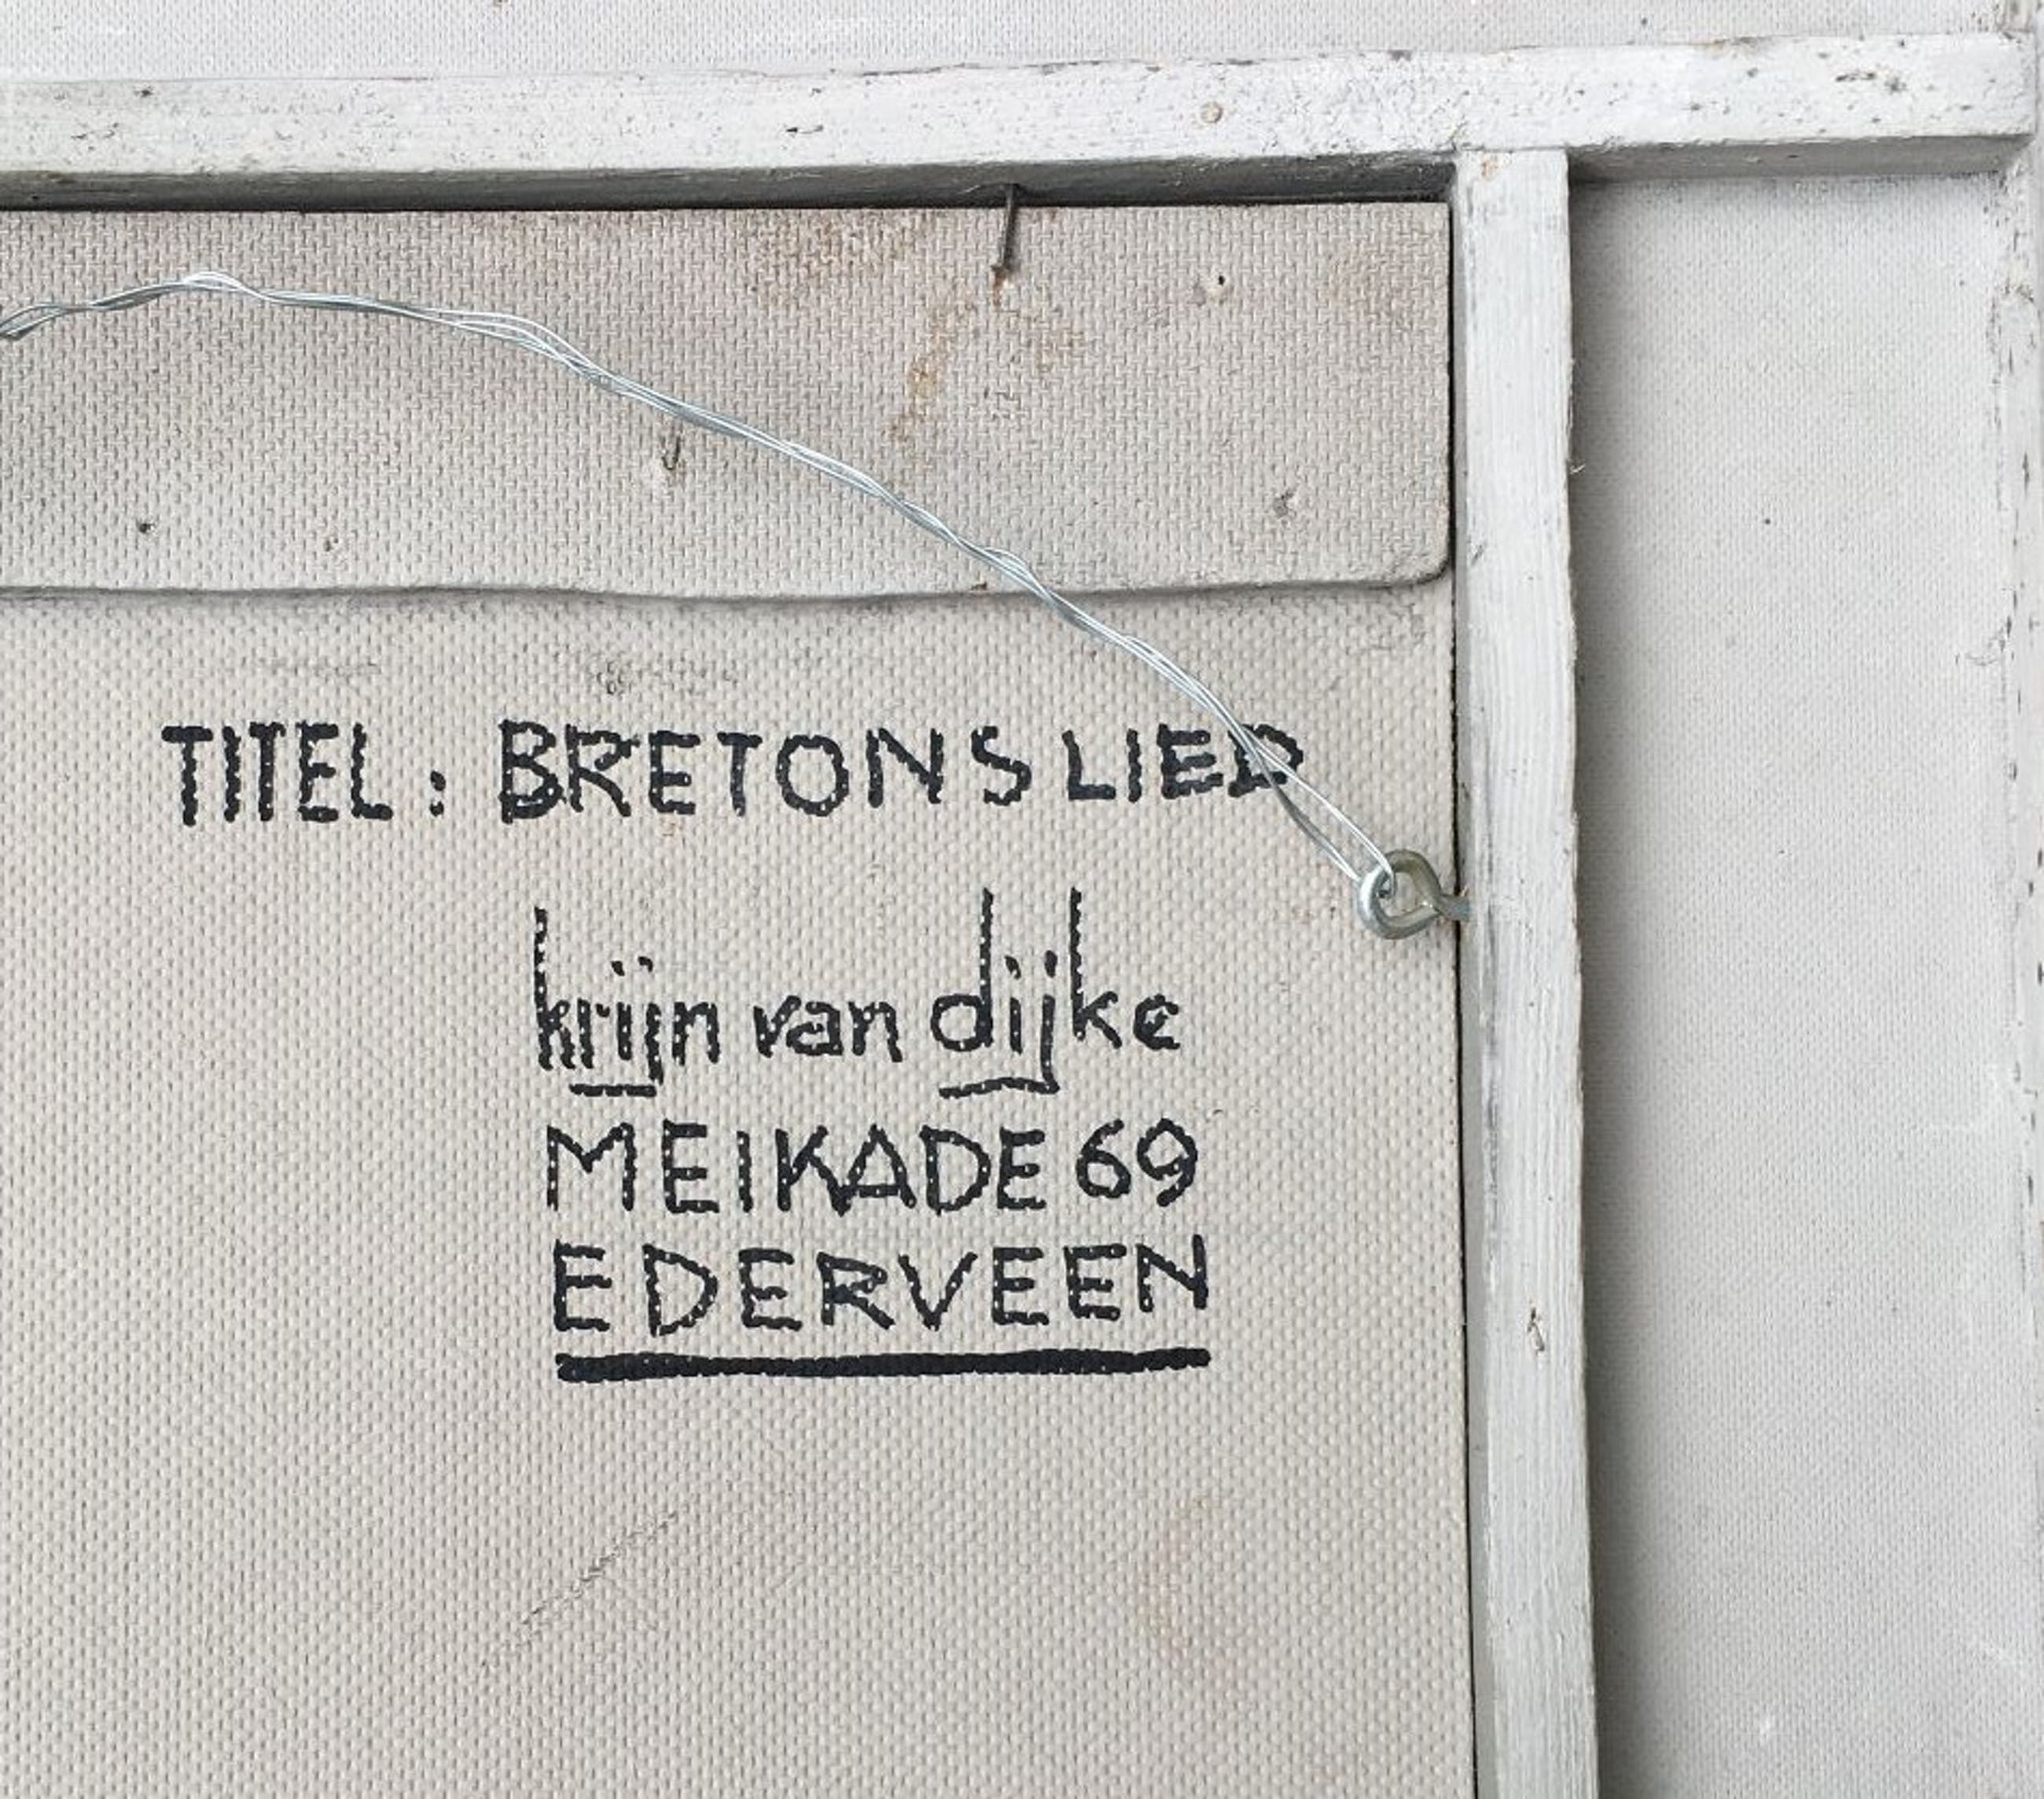 TITEL: BRETONS LIED
krijn van dijke
MEIKADE 69
EDERVEEN